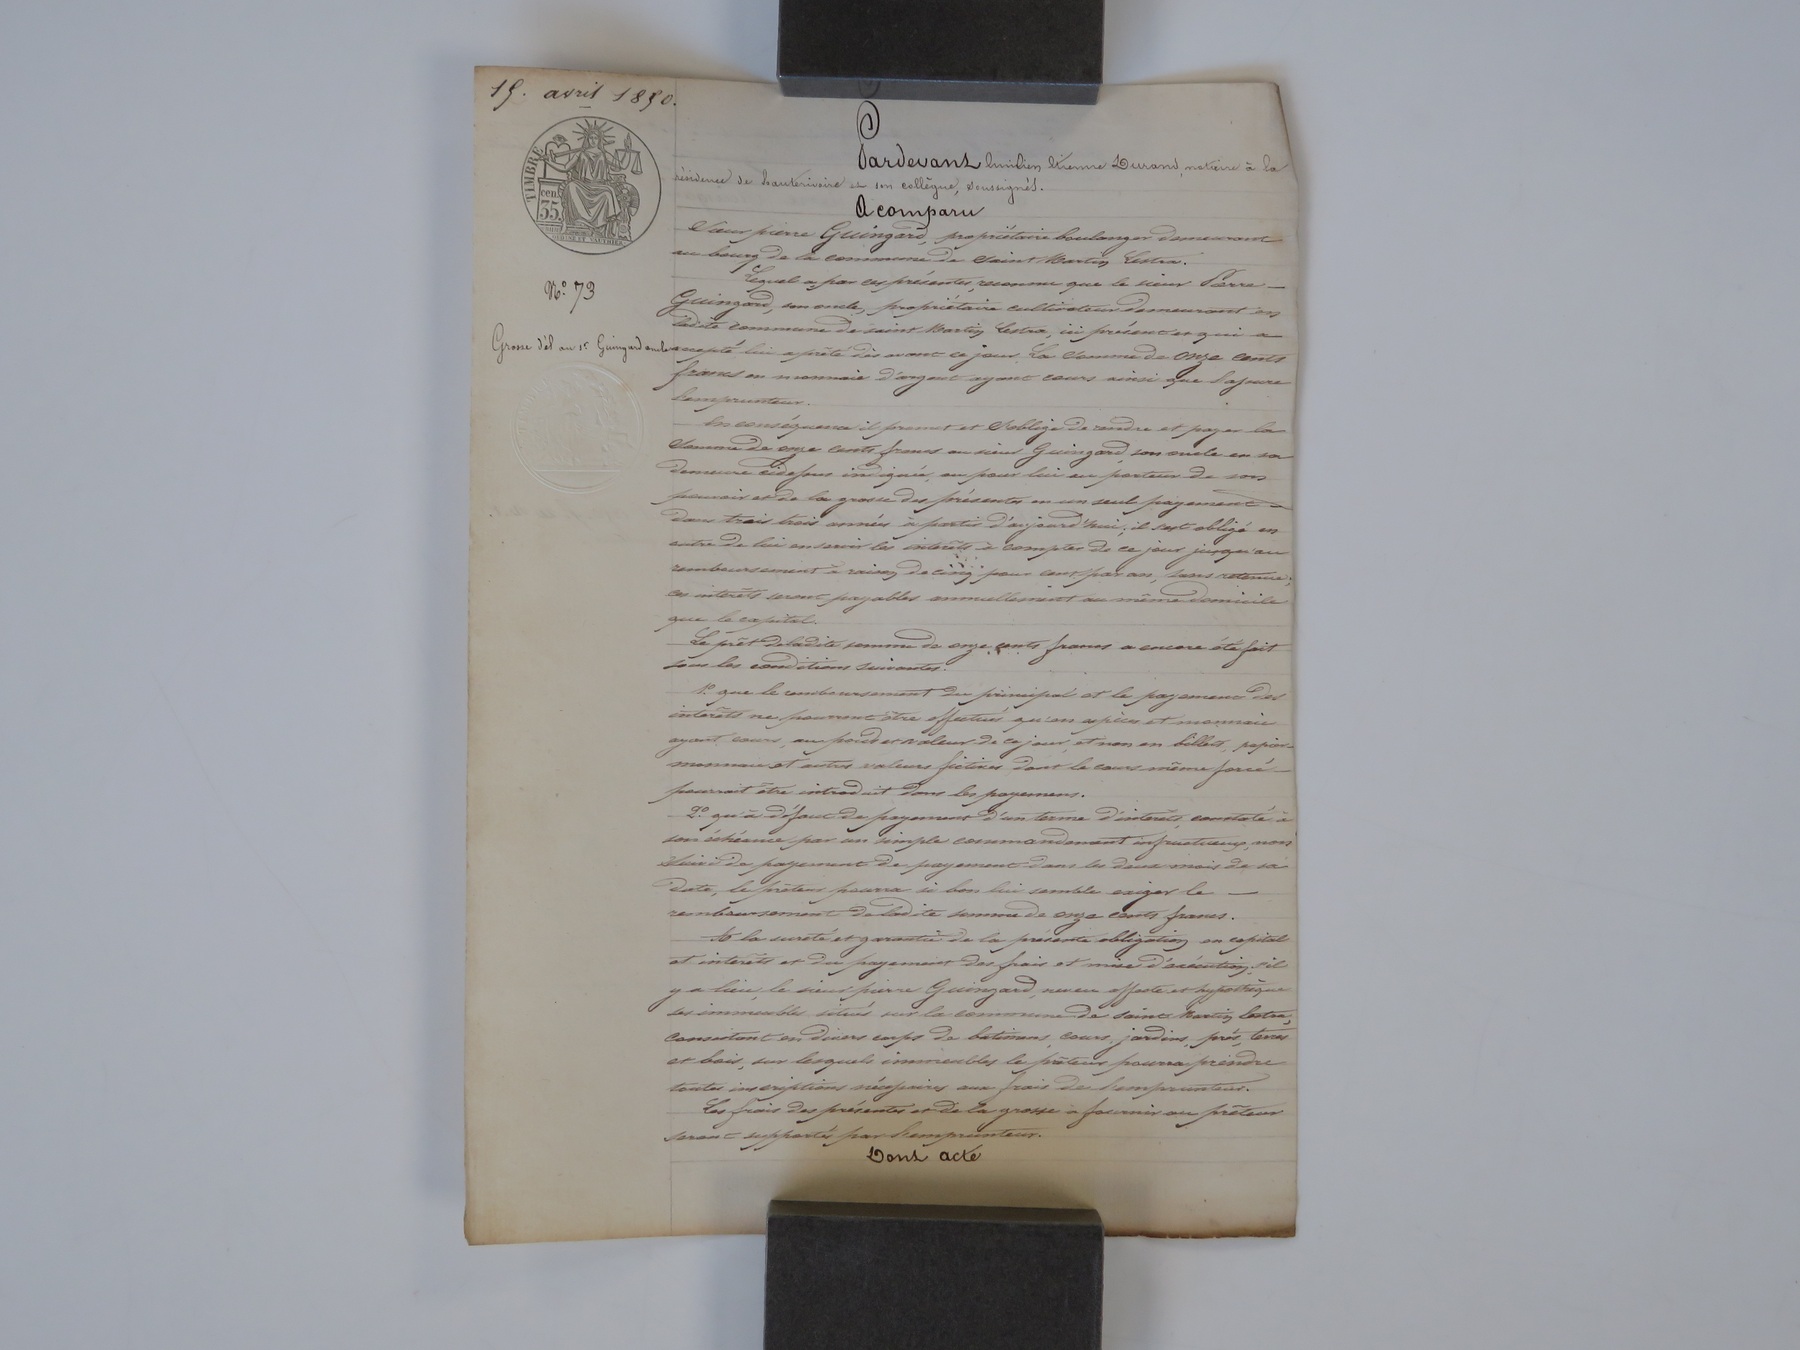 15. avril 1850.
TIMBRE
cen.
35.
N.o 73
Grosse dél. au sr. Guingard oncle
Pardevant Étienne Durand, notaire à la
résidence de hauterivoire et son collègue, soussignés.
A comparu
Sieur pierre Guingard, propriétaire boulanger demeurant
au bourg de la commune de Saint Martin Lestra.
Lequel a par ces présentes, reconnu que le sieur Pierre
Guingard, son oncle, propriétaire cultivateur demeurant en
ladite commune de saint Martin Lestra, ici présent et qui a
accepté lui a prêté dès avant ce jour La Somme de Onze cents
francs en monnaie d'argent ayant cours ainsi que l'assure
l'emprunteur.
En conséquence il promet et s'oblige de rendre et payer la
Somme de onze cents francs au sieur Guingard, son oncle en sa
demeure cidessus indiquée, ou pour lui au porteur de son
pouvoir et de la grosse des présentes en un seul payement
dans trois trois années à partir d'aujourd'hui; il s'est obligé en
outre de lui en servir les intérêts à compter de ce jour jusqu'au
remboursement à raison de cinq pour cent par an, sans retenue;
ces intérêts seront payables annuellement au même domicile
que le capital.
Le prêt de ladite somme de onze cents francs a encore été fait
sous les conditions suivantes:
1.o que le remboursement du principal et le payement des
intérêts ne pourront être effectués qu'en espèces et monnaie
ayant cours, au poids et valeur de ce jour, et non en billets, papier
monnaie et autres valeurs fictives dont le cours même forcé
pourrait être introduit dans les payemens.
2.o qu'à défaut de payement d'un terme d'intérêts, constaté à
son échéance par un simple commandement infructueux, non
Suivi de payement de payement dans les deux mois de sa
date, le prêteur pourra si bon lui semble exiger le
remboursement de ladite somme de onze cents francs.
A la sureté et garantie de la présente obligation en capital
et intérêts et du payement des frais et mise d'exécution, s'il
y a lieu, le sieur pierre Guingard, neveu affecte et hypothèque
ses immeubles situés sur la commune de saint Martin Lestra,
consistant en divers corps de batimens, cours, jardins, prés, terres
et bois, sur lesquels immeubles le prêteur pourra prendre
toutes inscriptions nécessaires aux frais de l'emprunteur.
Les frais des présentes et de la grosse à fournir au prêteur
seront supportés par l'emprunteur.
Dont acte